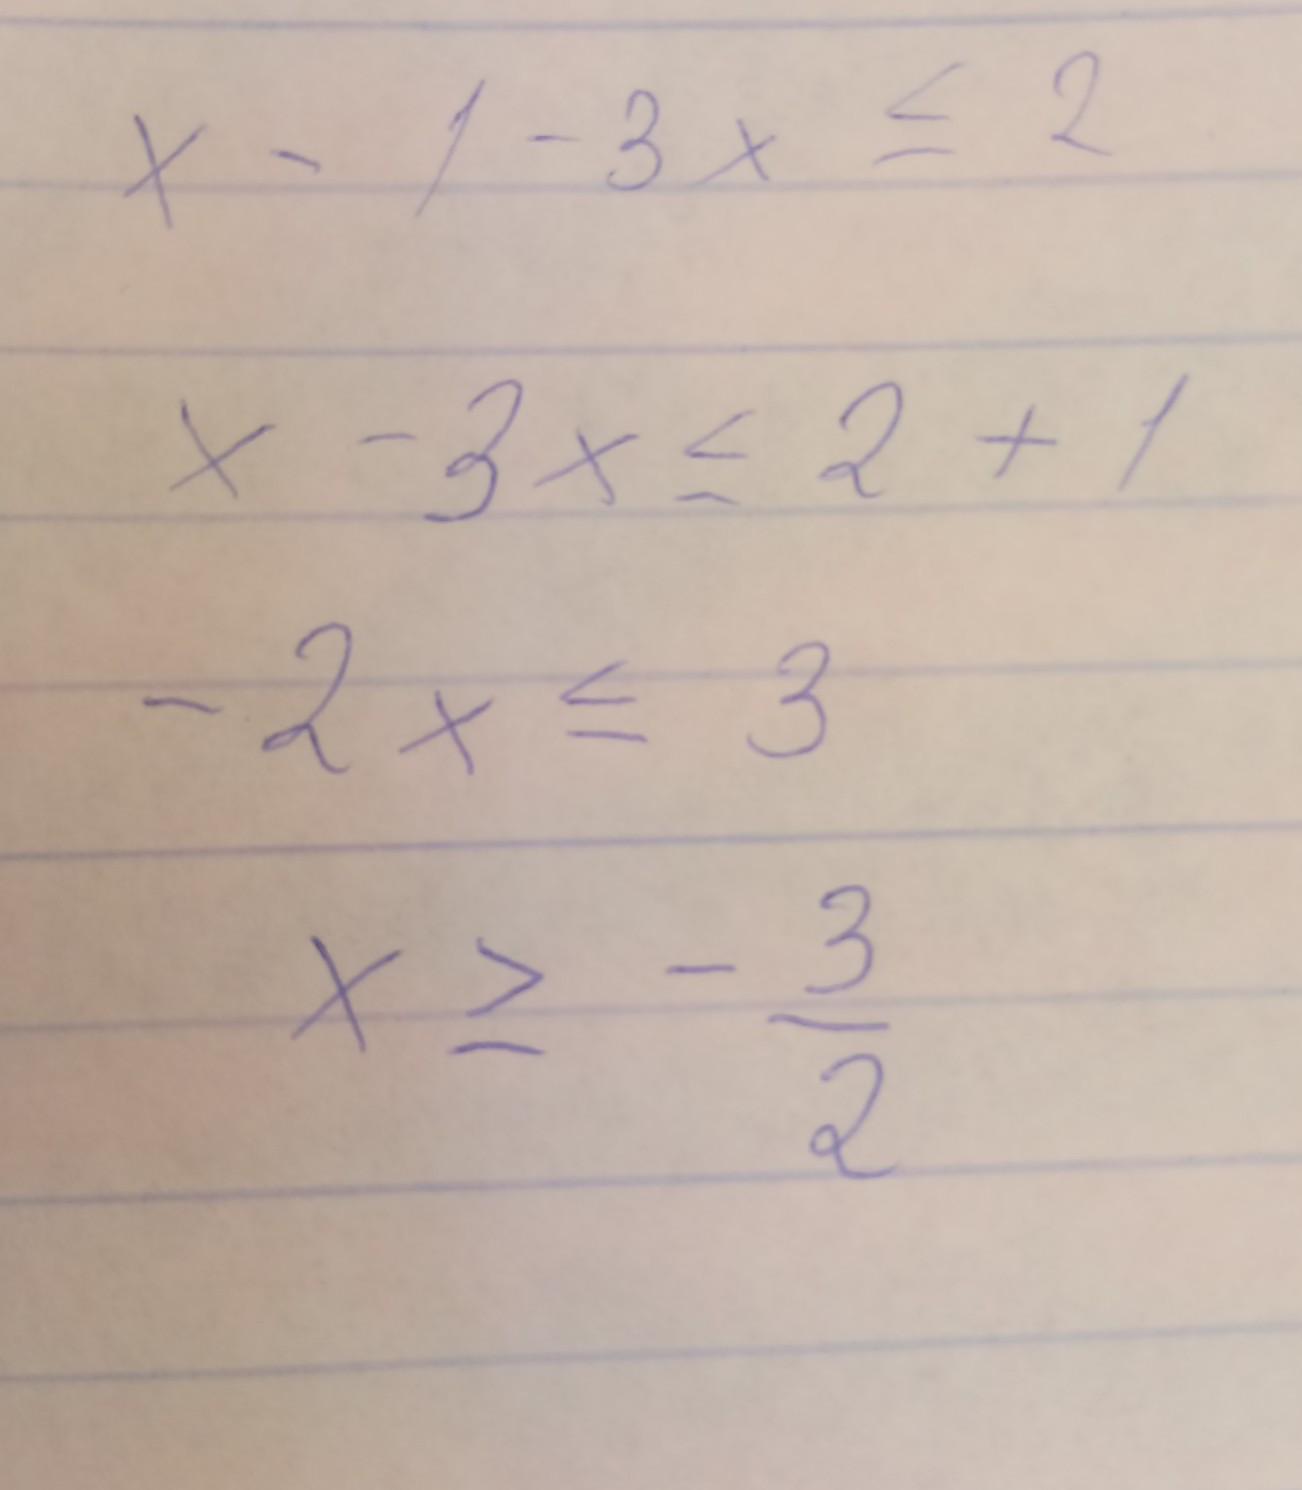 x - 1 - 3x ≤ 2
x - 3x ≤ 2 + 1
-2x ≤ 3
x ≥ - 3/2